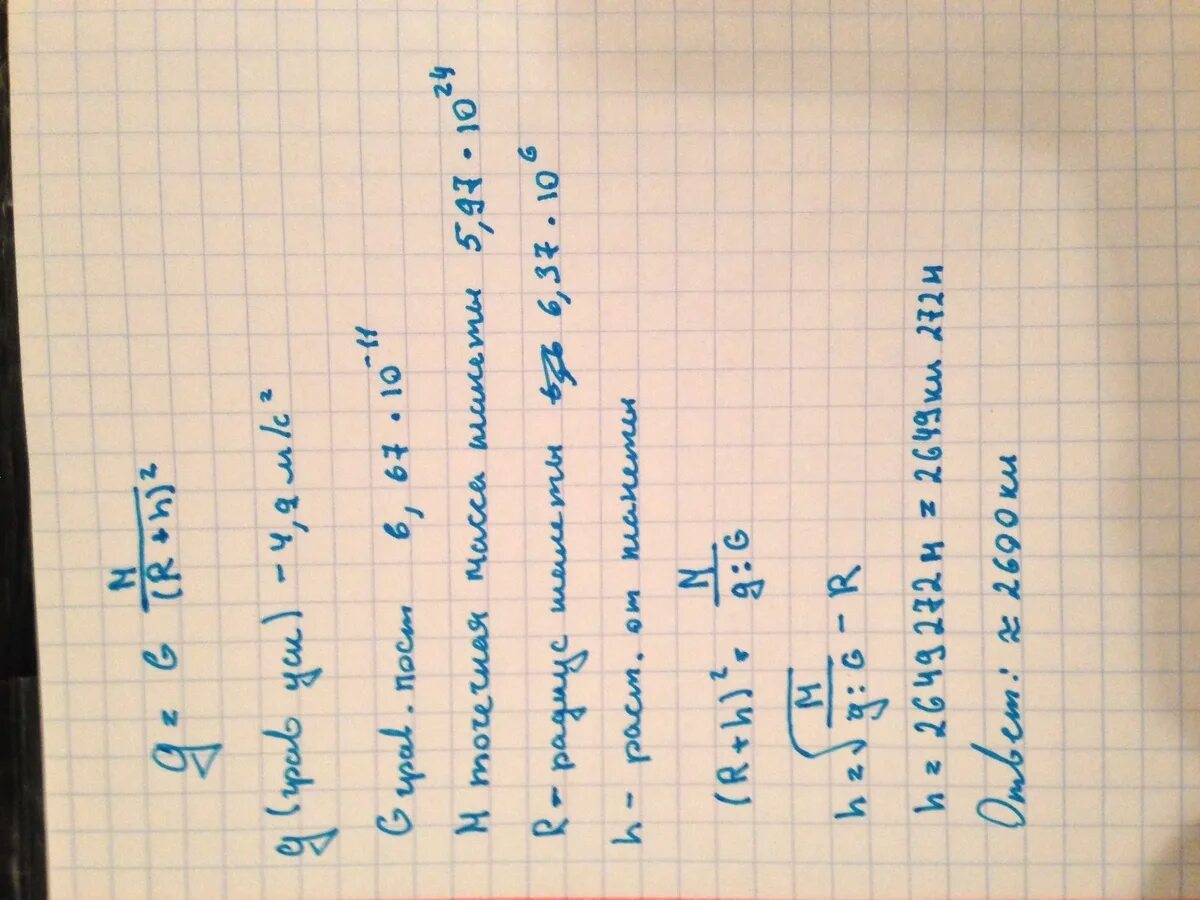 g = G M/(R+h)²
g (грав уси) - 4,9 м/с²
G грав. пост 6,67 · 10⁻¹¹
M точечная масса планеты 5,97 · 10²⁴
R - радиус планеты 6,37 · 10⁶
h - расст. от планеты
(R+h)² = M/g:G
h = √(M/g:G) - R
h = 2649272 м = 2649 км 272 м
Ответ: ≈ 2690 км